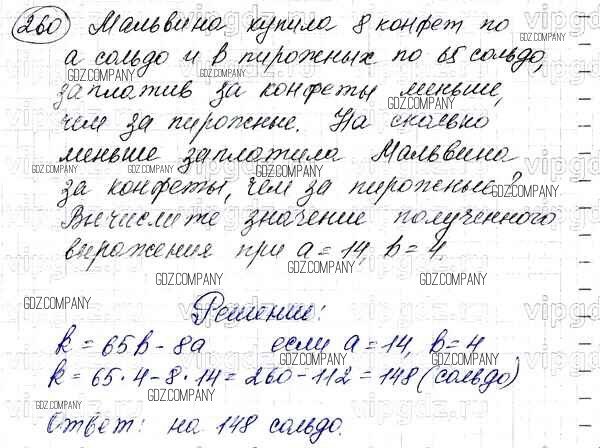 260 Мальвина купила 8 конфет по
а сольдо и в пирожных по 65 сольдо,
заплатив за конфеты меньше,
чем за пирожные. На сколько
меньше заплатила Мальвина
за конфеты, чем за пирожные?
Вычислите значение полученного
выражения при a = 14, b = 4.
Решение:
k = 65b - 8a если a = 14, b = 4
k = 65 · 4 - 8 · 14 = 260 - 112 = 148 (сольдо)
Ответ: на 148 сольдо.
GDZ.COMPANY
vipgdz.ru